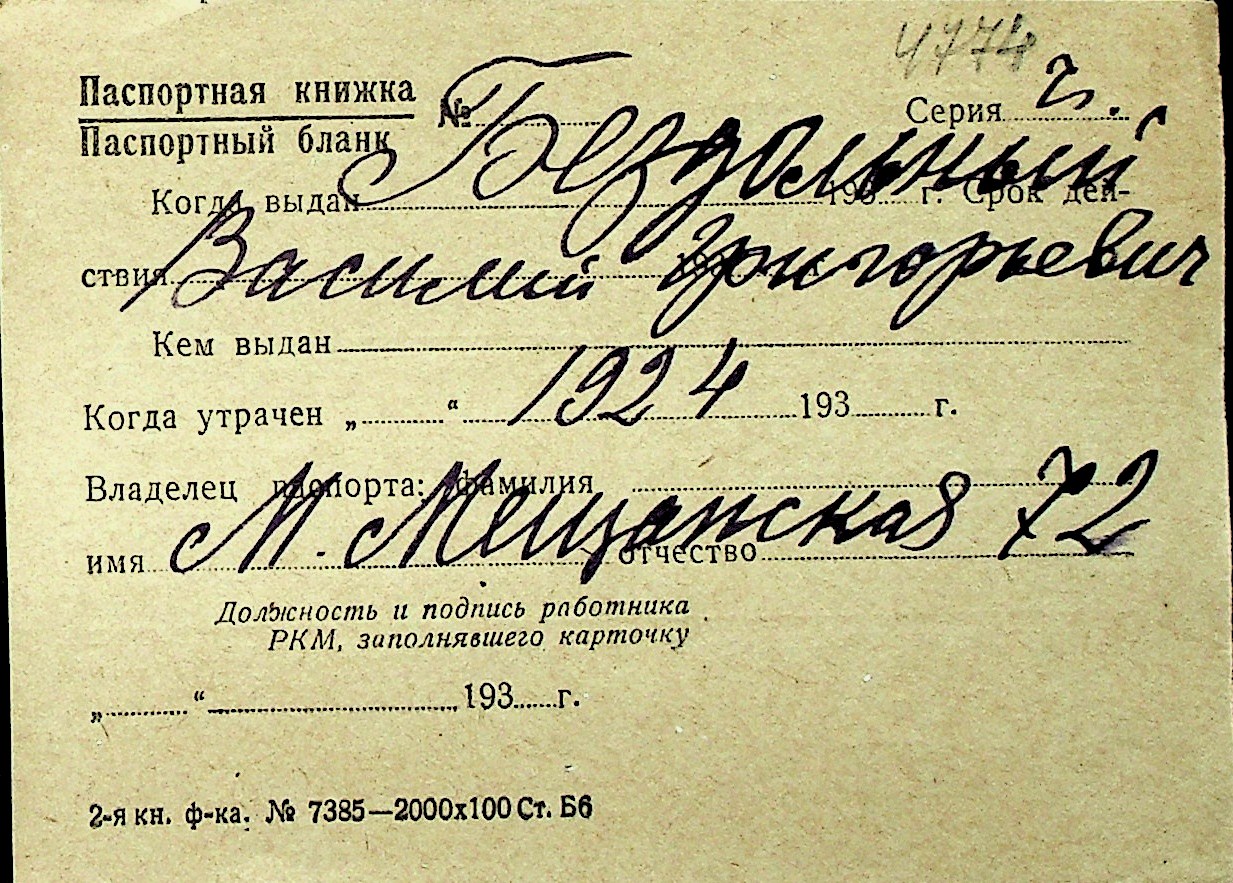 4774
Паспортная книжка
Паспортный бланк
№ Серия
Бездольный
Когда выдан 193 г. Срок дей-
Василий Григорьевич
ствия
Кем выдан
1924
Когда утрачен „ “ 193 г.
Владелец паспорта: фамилия
М. Мещанская 72
имя отчество
Должность и подпись работника
РКМ, заполнявшего карточку
„ “ 193 г.
2-я кн. ф-ка. № 7385—2000х100 Ст. Б6